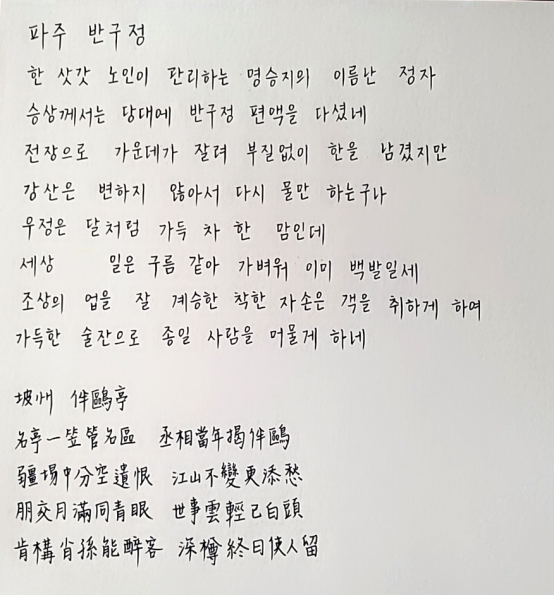 파주 반구정
한 삿갓 노인이 관리하는 명승지의 이름난 정자
승상께서는 당대에 반구정 편액을 다셨네
전장으로 가운데가 잘려 부질없이 한을 남겼지만
강산은 변하지 않아서 다시 볼만 하는구나
우정은 달처럼 가득 차 한 맘인데
세상 일은 구름 같아 가벼워 이미 백발일세
조상의 업을 잘 계승한 착한 자손은 객을 취하게 하여
가득한 술잔으로 종일 사람을 머물게 하네
坡州 伴鷗亭
名亭一笠管名區 丞相當年揭伴鷗
疆場中分空遺恨 江山不變更添愁
朋交月滿同青眼 世事雲輕已白頭
肯構肖孫能醉客 深樽終日使人留